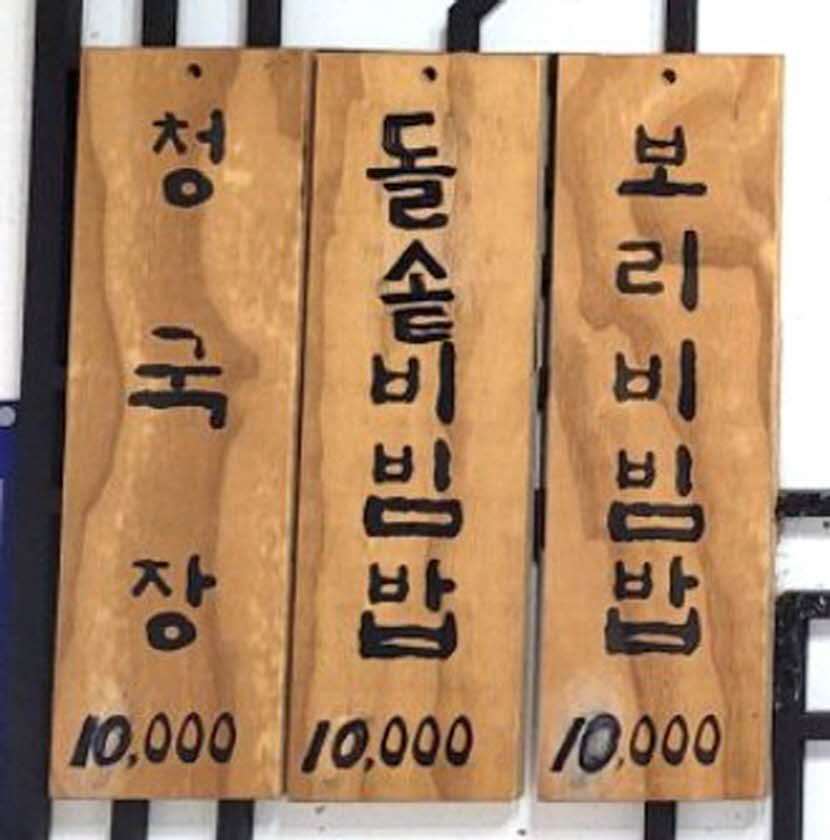 청국장
10,000
돌솥비빔밥
10,000
보리비빔밥
10,000